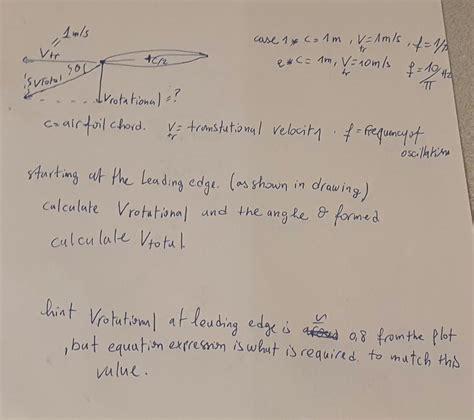 1m/s
Vtr
+c/2
case 1 * c = 1m , Vtr = 1m/s , f = 1/π
2 * c = 1m, Vtr = 10m/s f = 10/π Hz
θ
Vtotal
Vrotational = ?
c = airfoil chord. Vtr = translutional velocity. f = frequency of
oscillations
starting at the leading edge. (as shown in drawing)
calculate Vrotational and the angle θ formed
calculate Vtotal.
hint Vrotational at leading edge is ≈ 0,8 from the plot
, but equation expression is what is required. to match this
value.